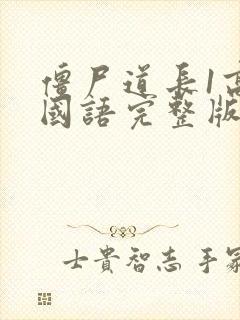 僵尸道長1高
國語完整版
士貴智志 手冢